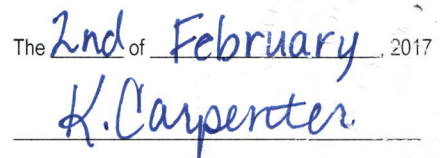 The 2nd of February, 2017
K. Carpenter